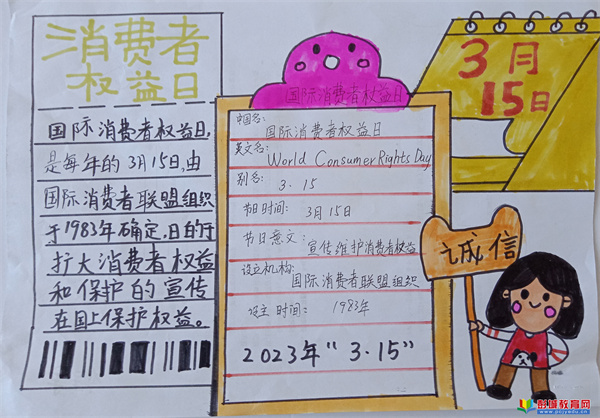 消费者
权益日
国际消费者权益日,
是每年的3月15日,由
国际消费者联盟组织
于1983年确定,目的于
扩大消费者权益
和保护的宣传
在国上保护权益。
国际消费者权益日
中国名:
国际消费者权益日
英文名:
World Consumer Rights Day
别名: 3.15
节日时间: 3月15日
节日意义: 宣传维护消费者权益
设立机构:
国际消费者联盟组织
设立时间: 1983年
2023年“3·15”
3月
15日
诚信
彭城教育网
www.pcjyedu.cn